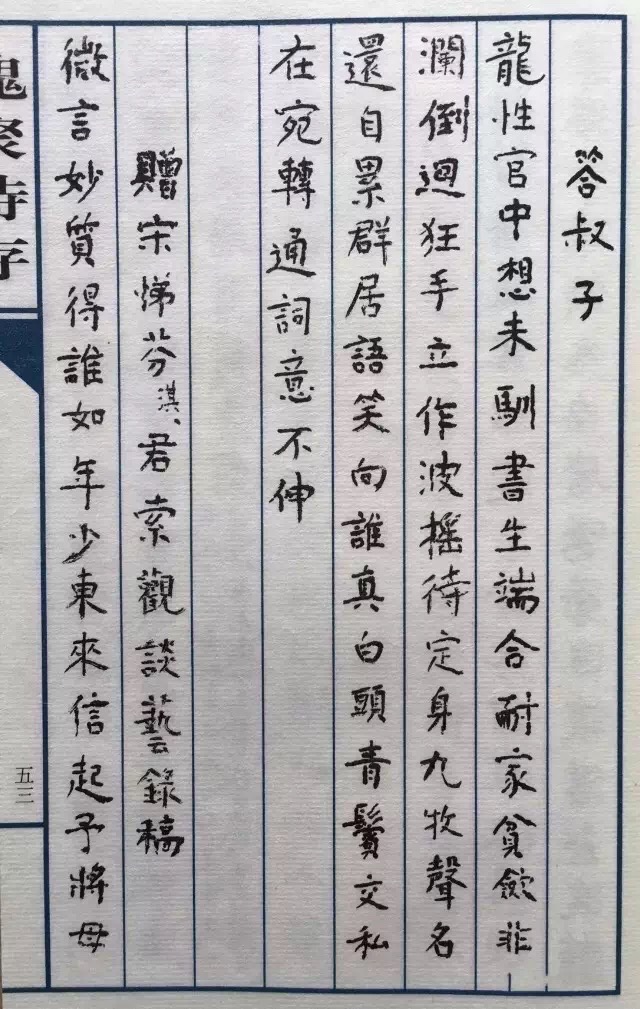 答叔子
龍性官中想未馴書生端合耐家貧歛非
瀾倒迴狂手立作波搖待定身九牧聲名
還自累群居語笑向誰真白頭青鬢交私
在宛轉通詞意不伸
贈宋悌芬淇、君索觀談藝錄稿
微言妙質得誰如年少東來信起予將母
槐聚詩存
五三